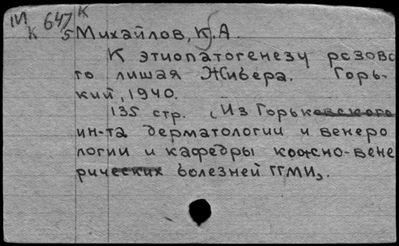 1И 647/5 К
К
Михайлов, К.А.
К этиопатогенезу розово
го лишая Жибера. Горь-
кий, 1940.
135 стр. (Из Горьковского
ин-та дерматологии и венеро
логии и кафедры кожно-вене
рических болезней ГГМИ).